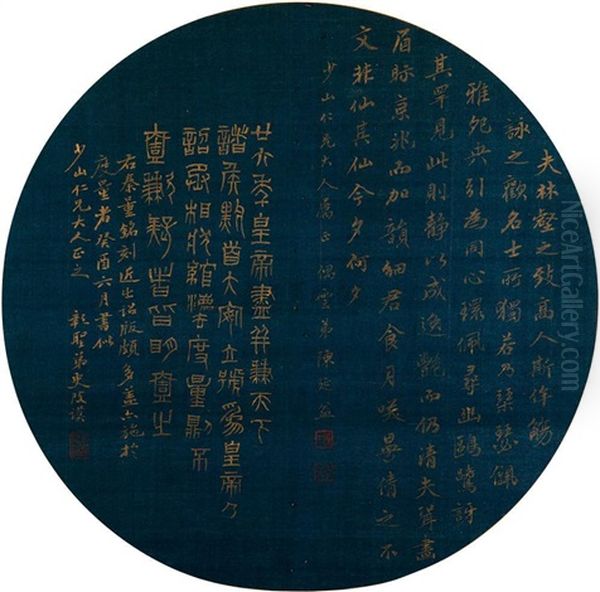 夫林壑之致高人斯侔觴
詠之歡名士所獨若乃琹瑟佩
雅共引為同心環佩尋幽鷗鷺訝
其罕見此則靜以成逸艷而仍清夫聲畫
眉眎京兆而加韻細君食月倩之不
文非仙其仙今夕何夕
少山仁兄大人屬正 偶雲弟陳延益
廿六年皇帝盡并兼天下
諸侯黔首大安立號為皇帝乃
詔丞相狀綰灋度量則不
壹歉疑者皆明壹之
右秦量銘刻近出詔版頗多蓋亦施於
度量者癸酉六月書似
少山仁兄大人正之 弟史
NiceArtGallery.com